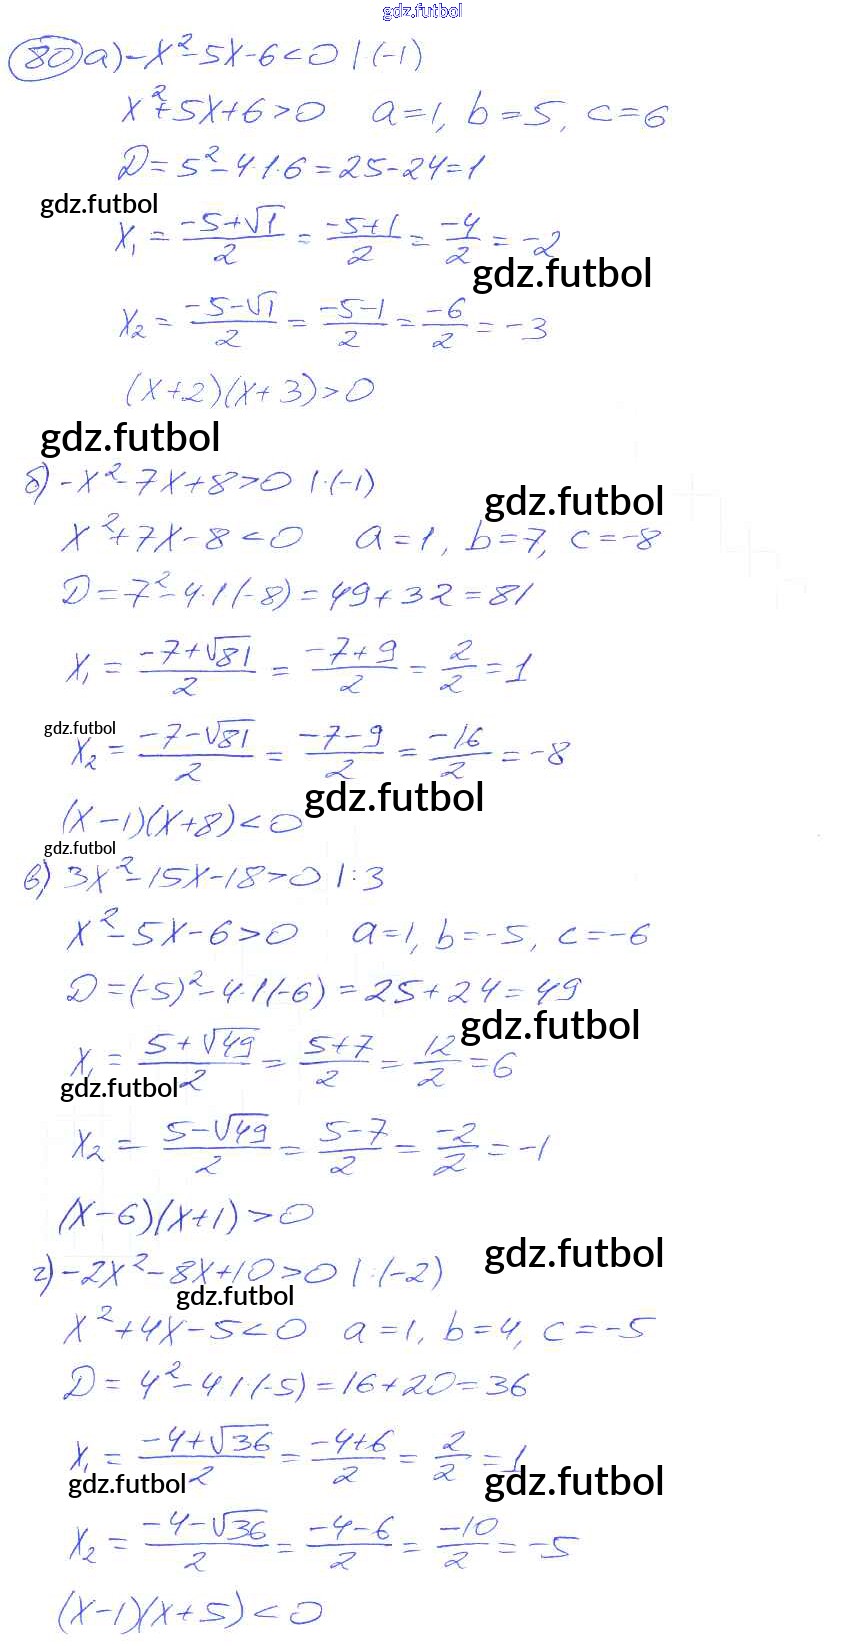 gdz.futbol
80 а) -x²-5x-6<0 | (-1)
x²+5x+6>0 a=1, b=5, c=6
D=5²-4·1·6=25-24=1
gdz.futbol
x₁ = (-5+√1)/2 = (-5+1)/2 = -4/2 = -2
gdz.futbol
x₂ = (-5-√1)/2 = (-5-1)/2 = -6/2 = -3
(x+2)(x+3)>0
gdz.futbol
б) -x²-7x+8>0 | ·(-1)
gdz.futbol
x²+7x-8<0 a=1, b=7, c=-8
D=7²-4·1(-8)=49+32=81
x₁ = (-7+√81)/2 = (-7+9)/2 = 2/2 = 1
gdz.futbol
x₂ = (-7-√81)/2 = (-7-9)/2 = -16/2 = -8
gdz.futbol
(x-1)(x+8)<0
gdz.futbol
в) 3x²-15x-18>0 | :3
x²-5x-6>0 a=1, b=-5, c=-6
D=(-5)²-4·1(-6)=25+24=49
gdz.futbol
x₁ = (5+√49)/2 = (5+7)/2 = 12/2 = 6
gdz.futbol
x₂ = (5-√49)/2 = (5-7)/2 = -2/2 = -1
(x-6)(x+1)>0
gdz.futbol
г) -2x²-8x+10>0 | :(-2)
gdz.futbol
x²+4x-5<0 a=1, b=4, c=-5
D=4²-4·1·(-5)=16+20=36
x₁ = (-4+√36)/2 = (-4+6)/2 = 2/2 = 1
gdz.futbol
gdz.futbol
x₂ = (-4-√36)/2 = (-4-6)/2 = -10/2 = -5
(x-1)(x+5)<0